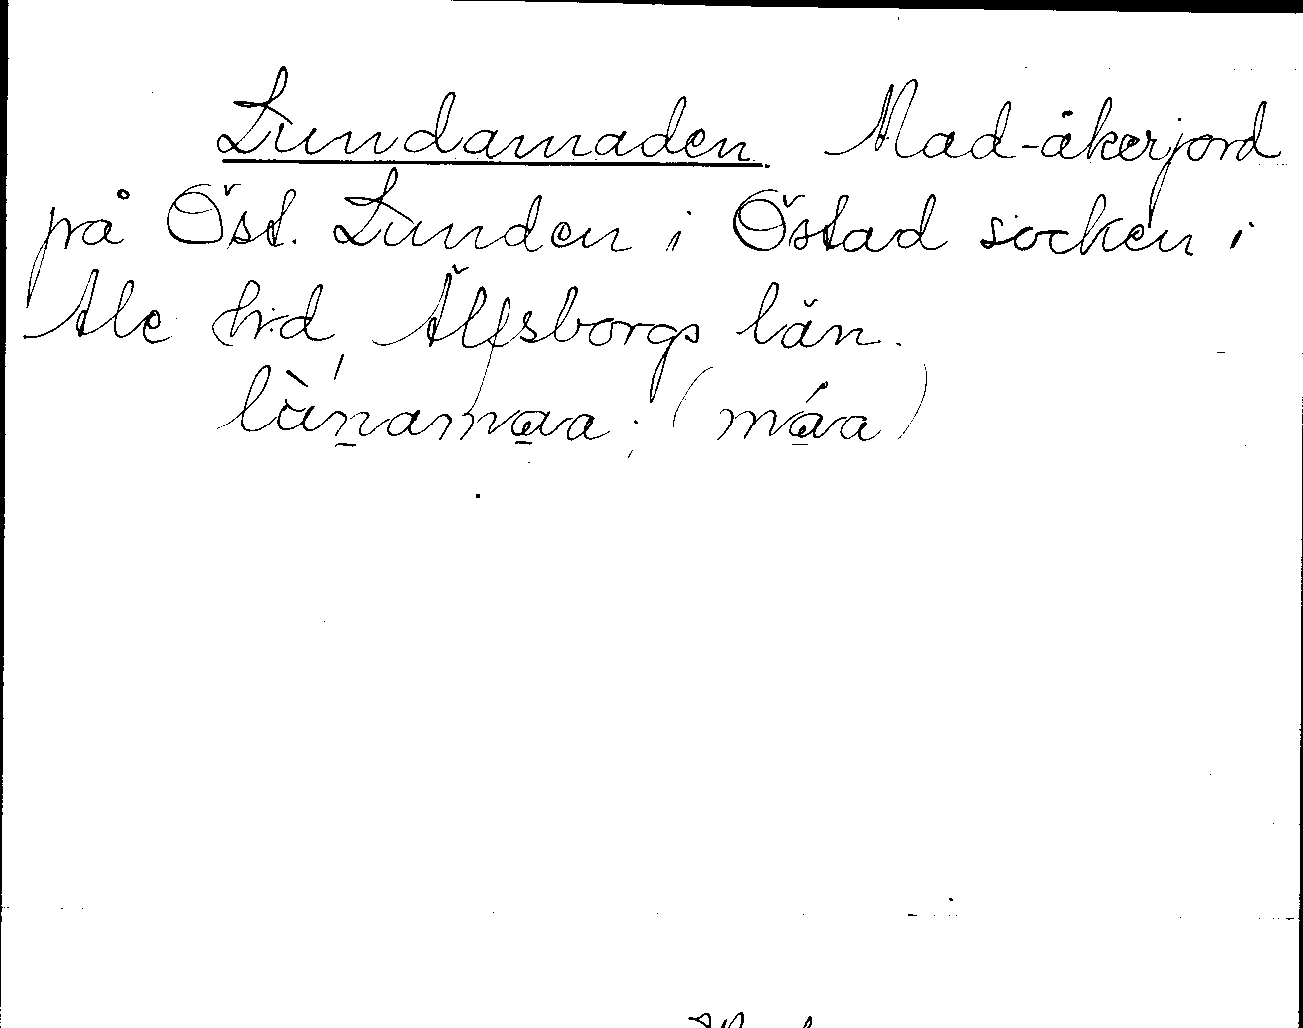 Lundamaden. Mad-åkerjord
på Öst. Lunden i Östad socken i
Ale hrd, Älfsborgs län.
lùnamaa; (máa)